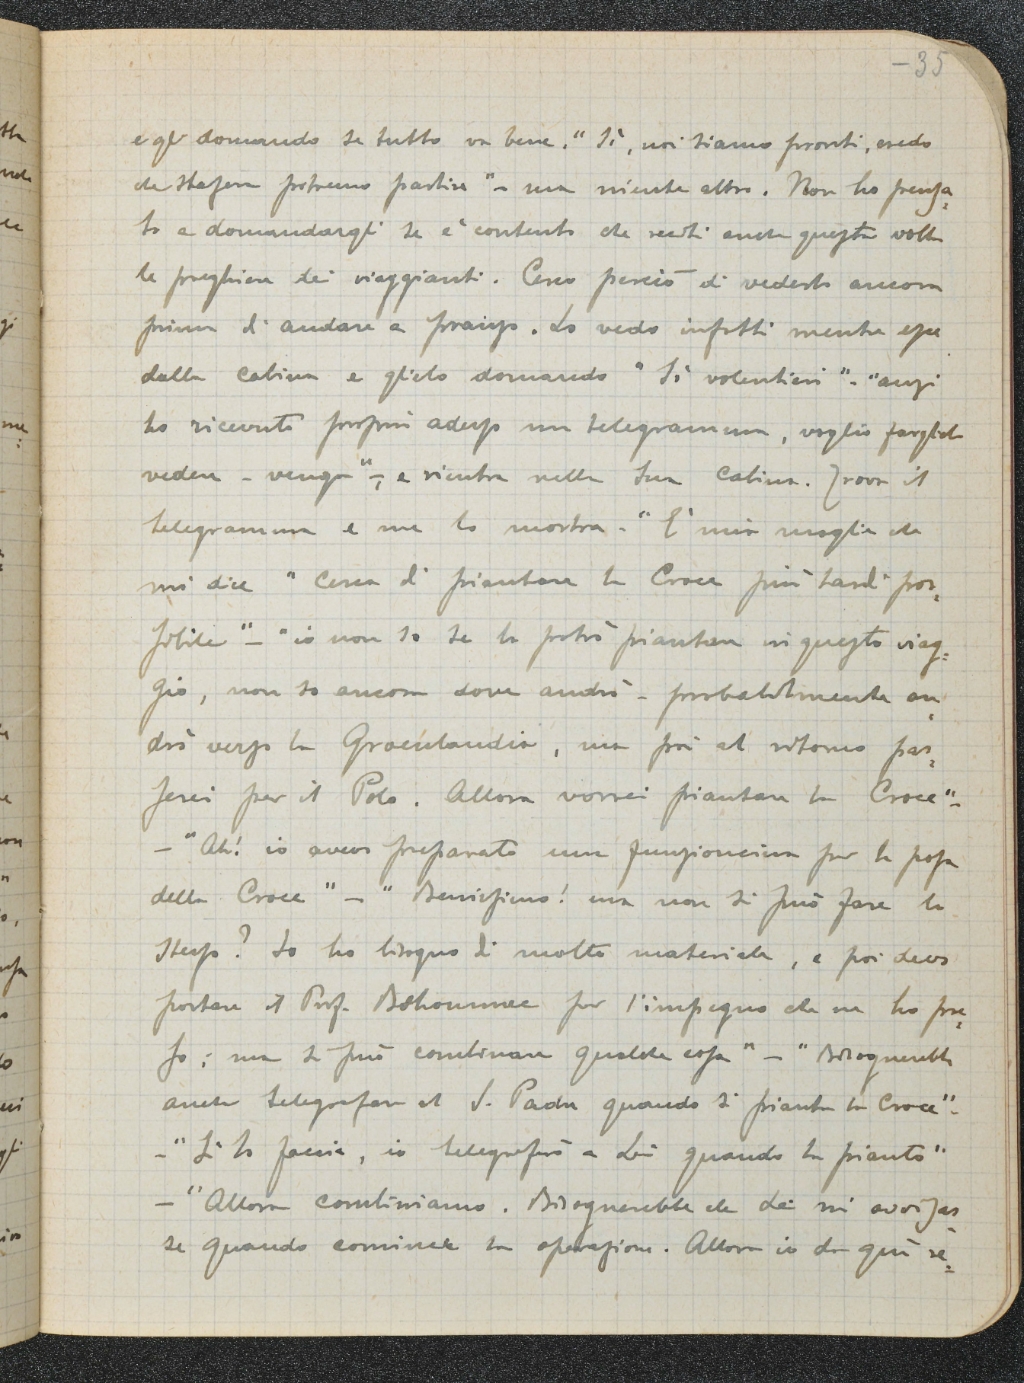 -35
e gli domando se tutto va bene. "Sì, noi siamo pronti, credo
che stasera potremo partire" - ma niente altro. Non ho pensa-
to a domandargli se è contento che reciti anche questa volta
le preghiere dei viaggianti. Cerco perciò di vederlo ancora
prima di andare a pranzo. Lo vedo infatti mentre esce
dalla cabina e glielo domando "Sì volentieri" - "anzi
ho ricevuto proprio adesso un telegramma, voglio farglielo
vedere - venga" -, e rientra nella sua cabina. Trova il
telegramma e me lo mostra - "È mia moglie che
mi dice "cerca di piantare la Croce più tardi pos-
sibile" - "io non so se la potrò piantare in questo viag-
gio, non so ancora dove andrò - probabilmente an-
drò verso la Groenlandia, ma poi al ritorno pas-
serei per il Polo. Allora vorrei piantare la Croce" -
- "Ah! io avevo preparato una funzioncina per la posa
della Croce" - "Benissimo! ma non si può fare lo
stesso? Io ho bisogno di molto materiale, e poi devo
portare il Prof. Běhounek per l'impegno che me ho pre-
so; ma si può combinare qualche cosa" - "Bisognerebbe
anche telegrafare al S. Padre quando si pianta la Croce" -
- "Sì lo faccia, io telegraferò a Lei quando la pianto"
- "Allora combiniamo. Bisognerebbe che Lei mi avvisas-
se quando comincia la operazione. Allora io da qui re-